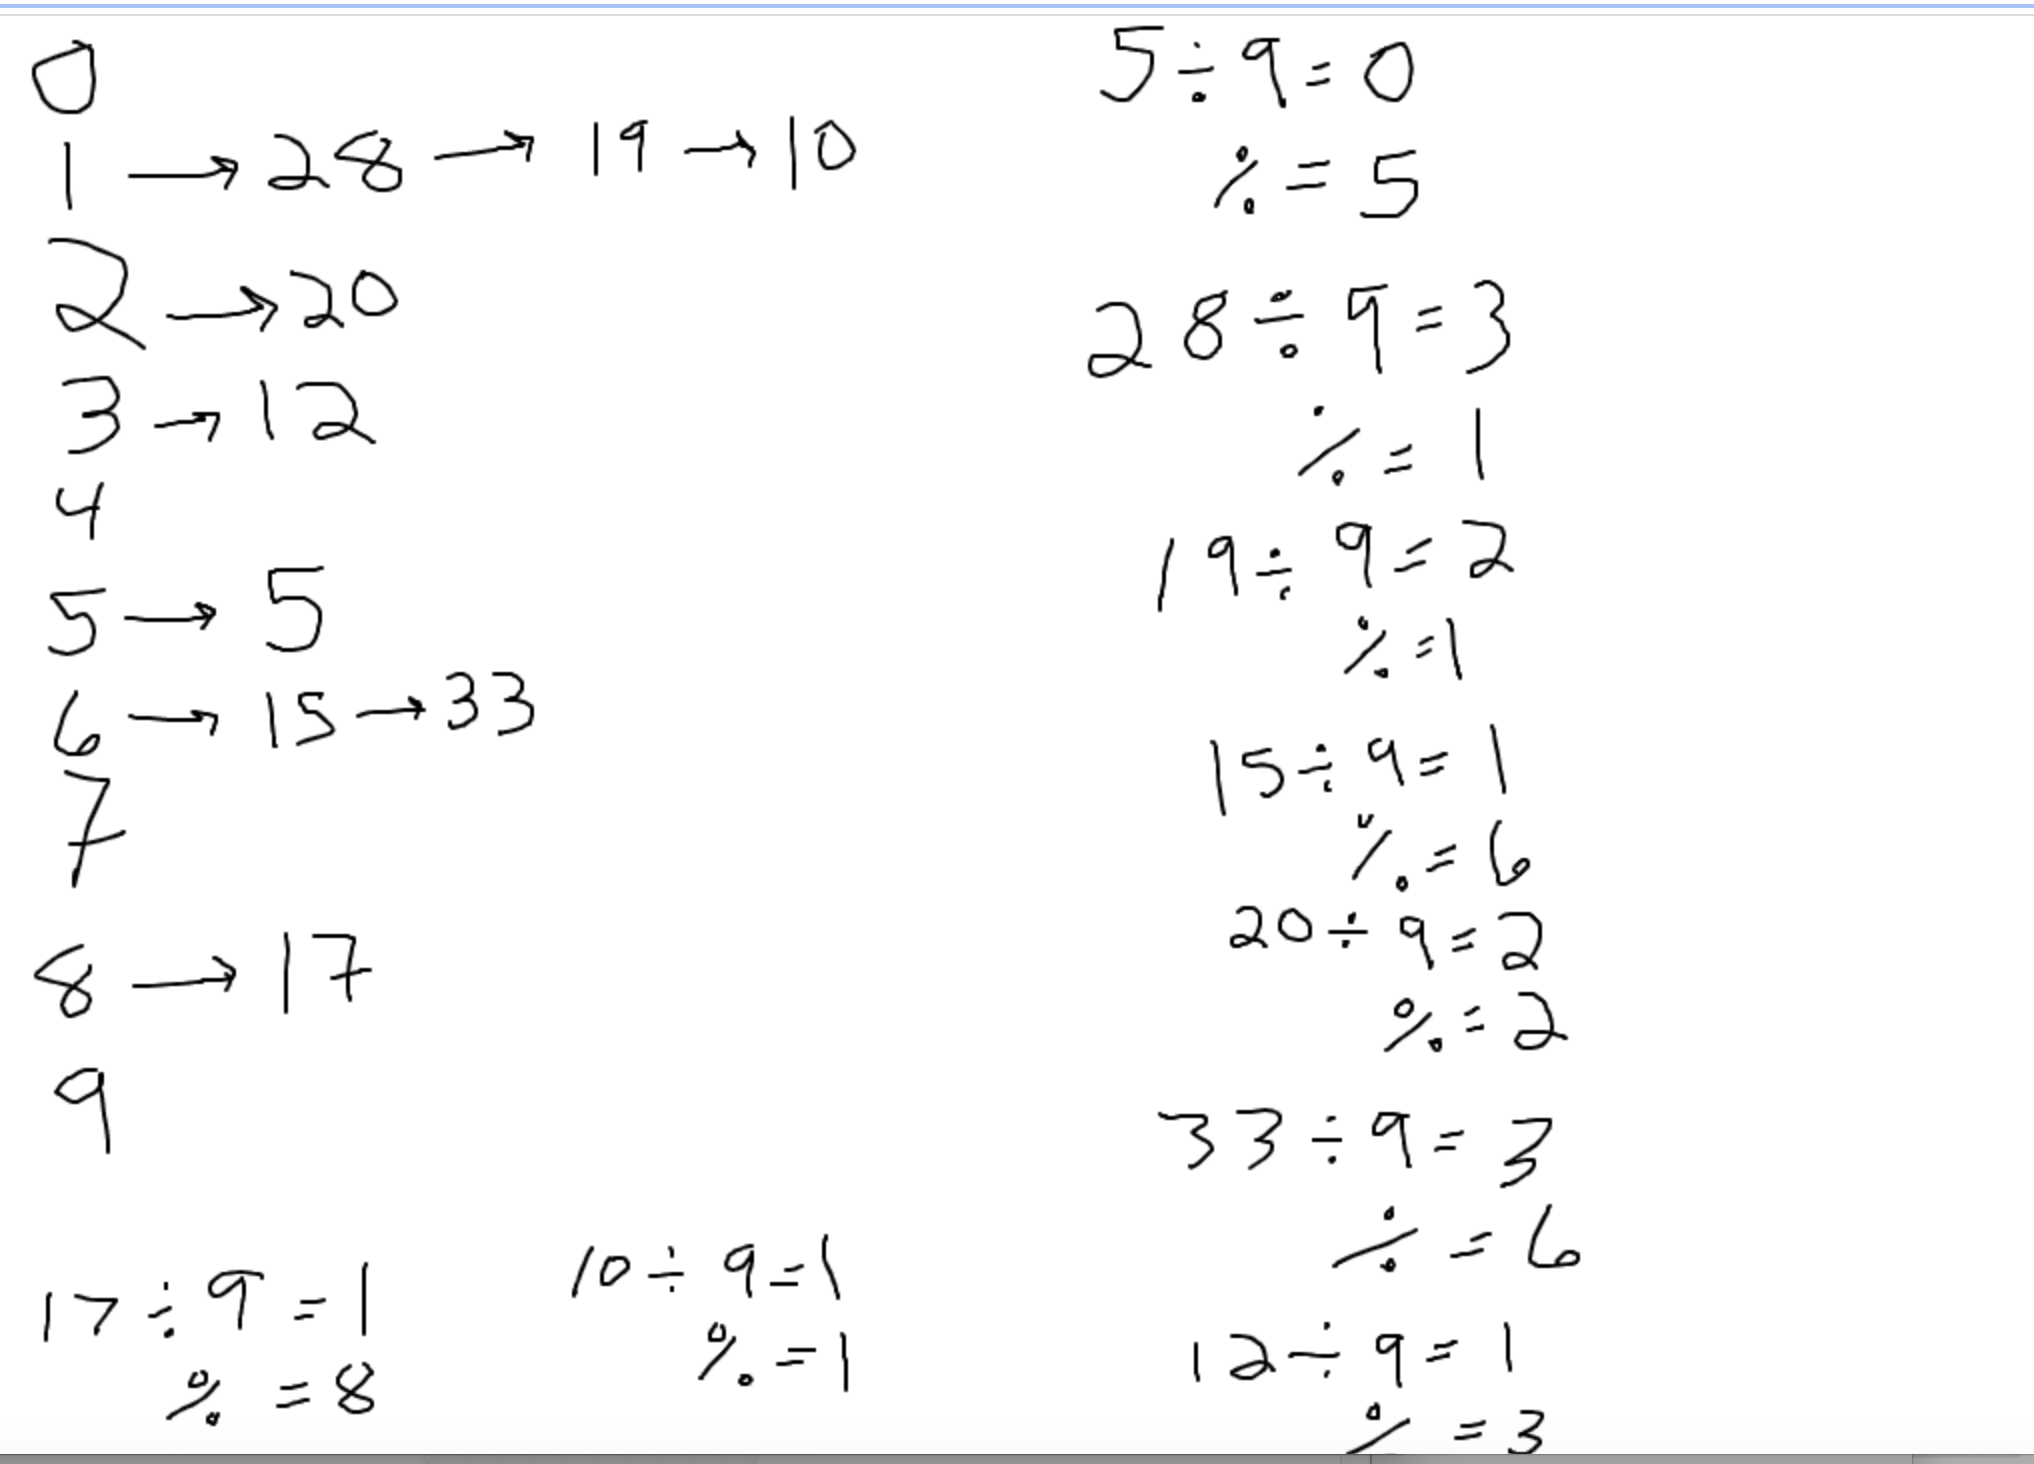 0
1 → 28 → 19 → 10
2 → 20
3 → 12
4
5 → 5
6 → 15 → 33
7
8 → 17
9
17 ÷ 9 = 1
% = 8
10 ÷ 9 = 1
% = 1
5 ÷ 9 = 0
% = 5
28 ÷ 9 = 3
% = 1
19 ÷ 9 = 2
% = 1
15 ÷ 9 = 1
% = 6
20 ÷ 9 = 2
% = 2
33 ÷ 9 = 3
% = 6
12 ÷ 9 = 1
% = 3